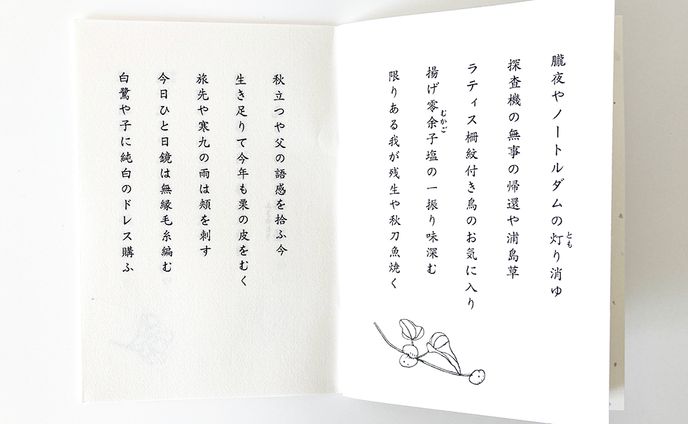 朧夜やノートルダムの灯り消ゆ
とも
探査機の無事の帰還や浦島草
ラティス柵紋付き鳥のお気に入り
揚げ零余子塩の一振り味深む
むかご
限りある我が残生や秋刀魚焼く
秋立つや父の語感を拾ふ今
生き足りて今年も栗の皮をむく
旅先や寒九の雨は頬を刺す
今日ひと日鏡は無縁毛糸編む
白鷺や子に純白のドレス購ふ